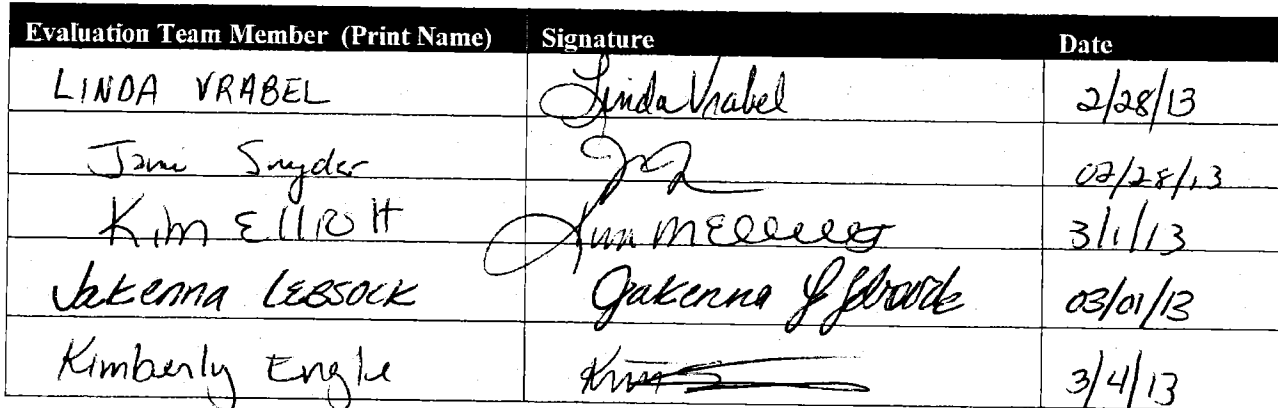 Evaluation Team Member (Print Name) Signature Date
LINDA VRABEL Linda Vrabel 2/28/13
Jami Snyder 02/28/13
Kim Elliott Kim M Elliott 3/1/13
Jakenna Lebsock Jakenna L Lebsock 03/01/13
Kimberly Engle Kim 3/4/13